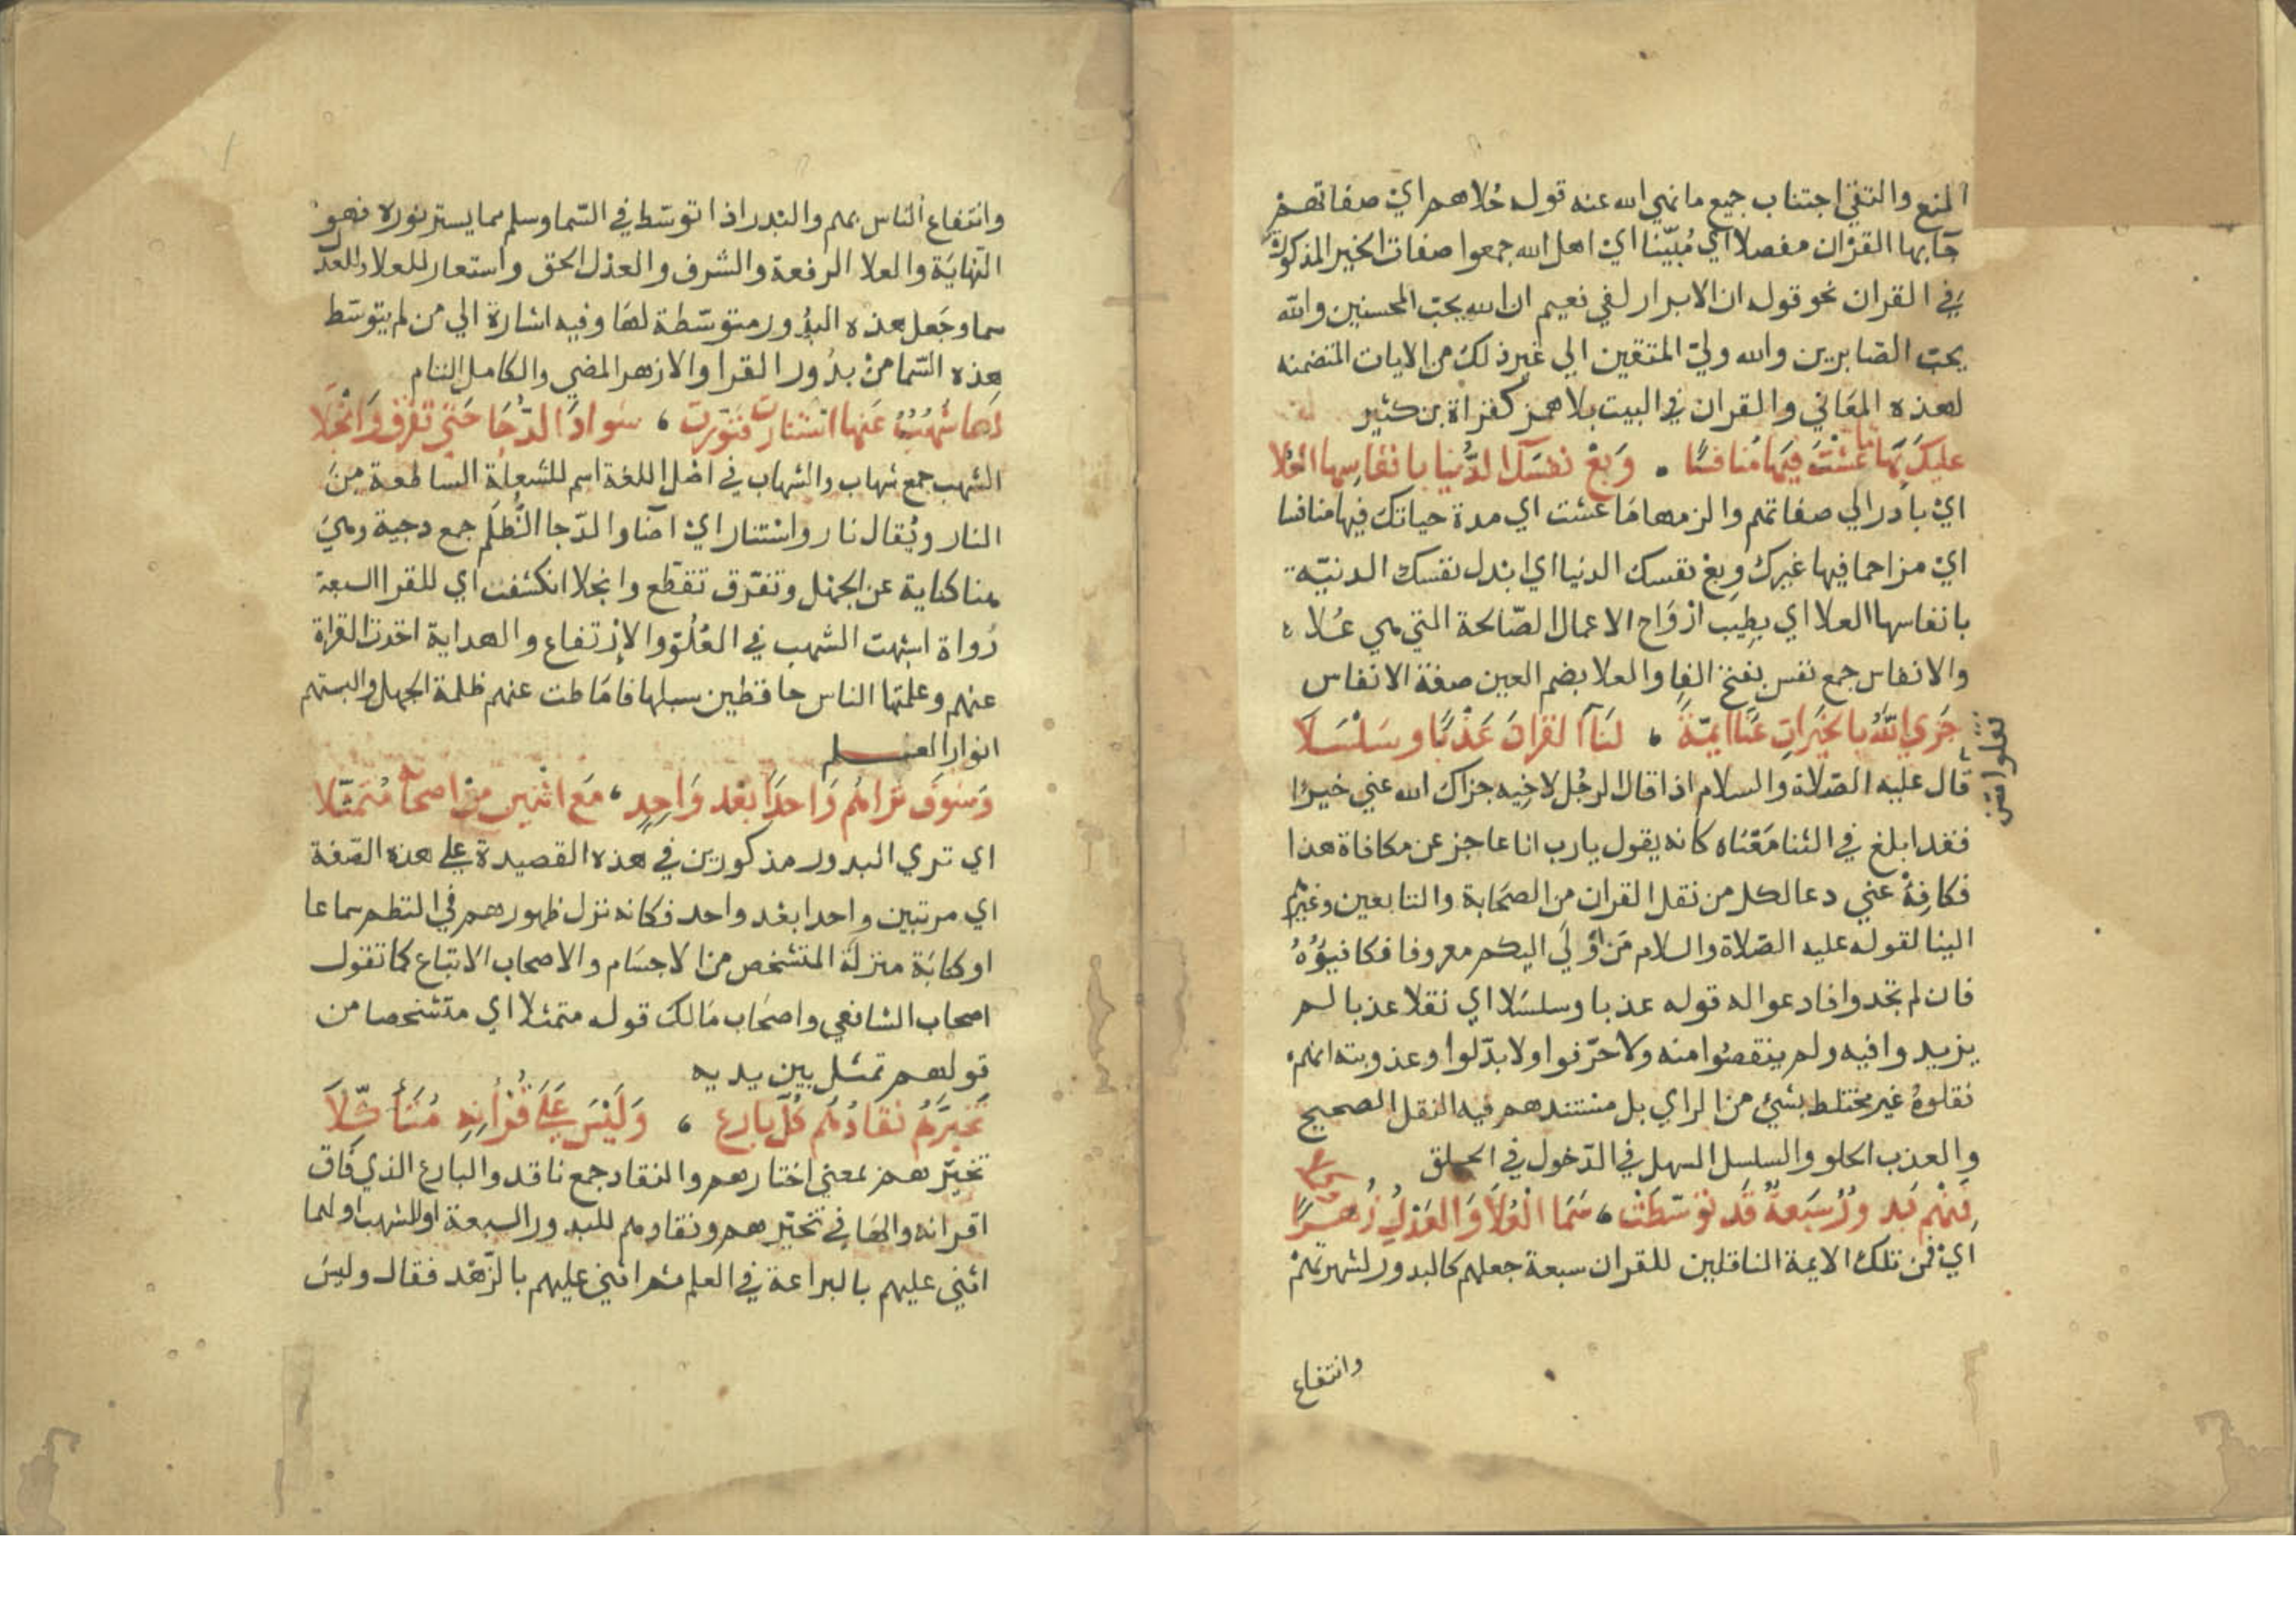 المنع والتقي اجتناب جميع ما نهي الله عنه قوله حُلاهم اي صفاتهم
جَا بها القرْان مفصلا اي مُبيّنا اي اهل الله جمعوا صفات الخير المذكورة
في القران نحو قوله ان الابرار لفي نعيم ان الله يحبّ المحسنين والله
يحبّ الصّابرين والله وليّ المتقين الي غير ذلك من الايات المتضمنه
لهذه المعَاني والقران في البيت بلا همز كقراة بن كثير
عليكَ بهَا ما عشْتَ فيهَا مُنافسًا . وَبعْ نفسَكَ الدُّنيا بانفاسِها العُلا
ايْ بادر الي صفاتهم والزمها مَا عشت اي مدة حياتك فيها منافسا
ايْ مزاحما فيها غيرك وبعْ نفسك الدنيا اي ابدل نفسك الدنيّه
بانفاسها العلا اي بطِيب ارْوَاح الاعمال الصّالحة التي هي عُلا
والانفاس جمع نفس بفتح الفا والعلا بضم العين صفة الانفاس
جَزي اللهُ بالخيَراتِ عنّا ايمّةً ، لنَا نقلوا القرانَ عَذْبًا وسَلْسَلاَ
نقلوا
قال عليه الصّلاة والسلام اذا قال الرجُل لاخِيه جزاك الله عني خيرًا
فقد ابلغ في الثنا مَعْنَاه كانه يقول يا رب انا عاجز عن مكافاة هذا
فكافِهْ عني دعا لكل من نقل القران من الصحَابة والتابعين وغيرهم
الينا لقوله عليه الصّلاة والسلام مَن اوْلَي اليكم معروفا فكافيؤهُ
فان لم تجدوا فادعوا له قوله عذبا وسلسَلا اي نقلا عذبا لم
يزيدوا فيه ولم ينقصُوا منه ولا حرّفوا ولا بدّلوا وعذوبته انهم
نقلوهُ غير مختلط بشيْ من الراي بل مستندهم فيه النقل الصحيح
والعذب الحلو والسلسل السهل في الدّخول في الحلق
فمِنْهم بُدورٌ سَبعَةٌ قَد توَسّطَتْ ، سَمَا الْعُلاَ وَالعَدْلِ زُهْرًا
ايْ فمن تلك الايمة الناقلين للقران سبعة جعلهم كالبدور لشهرتهمْ
وانتفاع
وانتفاع الناس بهم والبَدر اذا توسّط في السّما وسلم مما يستر نوره فهو
النّهايَة والعلا الرفعة والشرف والعدل الحق واستعار للعلا وللعدل
سما وجَعل هذه البدُور متوسّطة لهَا وفيه اشارة الي من لم يتوسّط
هذه السّما منْ بدُور القرا والازهر المضي والكامل التام
لهَا شهُبٌ عَنها استنارَت فنوّرت ، سَوادَ الدّجَا حَتي تفرّق وَانْجَلا
الشهب جمع شهاب والشهاب في اصْل اللغة اسم للشعلة الساطعة مِنَ
النار ويُقال نار واسْتنار ايْ اضَا والدّجا الظُلَم جمع دجية وهيَ
هنا كناية عن الجهْل وتفرّق تقطّع وانجلا انكشفت اي للقرا السبعة
رُواة اشبهت الشهب في العُلُوّ والاِرْتفاع والهداية اخذت القراة
عنهم وعلمتها الناس حافظين سبلها فامَاطت عنهم ظلمة الجهل والبستهم
انوار العلم
وَسَوفَ تَرَاهُم وَاحدًا بَعْد وَاحِدٍ ، مَع اثْنين مِنْ اصحابه مُتمَثّلا
اي تري البدور مذكورين في هذه القصيدة علي هذه الصّفة
اي مرتبين واحدا بعْد واحد فكانه نزل ظهورهم في النظم سماعا
او كتابَة منزلَة المتشخص من الاجسَام والاصحاب الاتباع كما تقول
اصحاب الشافعي واصحَاب مَالك قوله متمثلا اي متشخصا من
قولهم تمثل بين يديه
تَخيّرَهُم نقادُهُم كُلَّ بارِعٍ ، وَلَيْسَ عَلَي قُرْانِهِ مُتأَكّلاَ
تخيّرهمْ بمعني اختارهم والنقاد جمع ناقد والبارع الذي فَاق
اقرانه والهَا في تخيّرهم ونقادهم للبدور السبعة او للشهب او لهما
اثني عليهم بالبراعة في العلم ثم اثني عليهم بالزّهْد فقال وليسَ